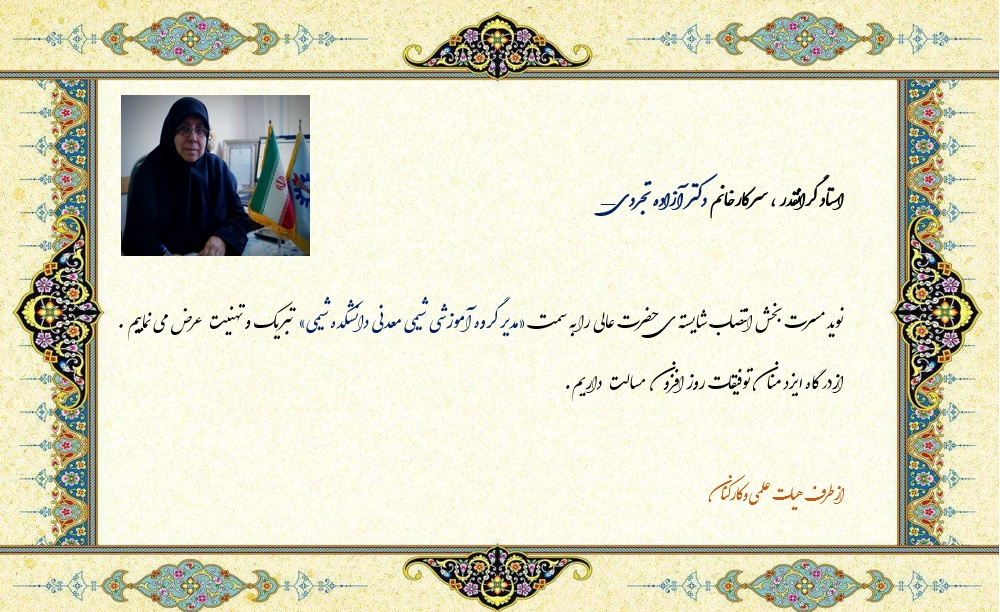 استاد گرانقدر ، سرکار خانم دکتر آزاده تجردی
نوید مسرت بخش انتصاب شایسته ی حضرت عالی را به سمت «مدیر گروه آموزشی شیمی معدنی دانشکده شیمی» تبریک و تهنیت عرض می نماییم .
از درگاه ایزد منان توفیقات روز افزون مسالت داریم .
از طرف هیات علمی و کارکنان